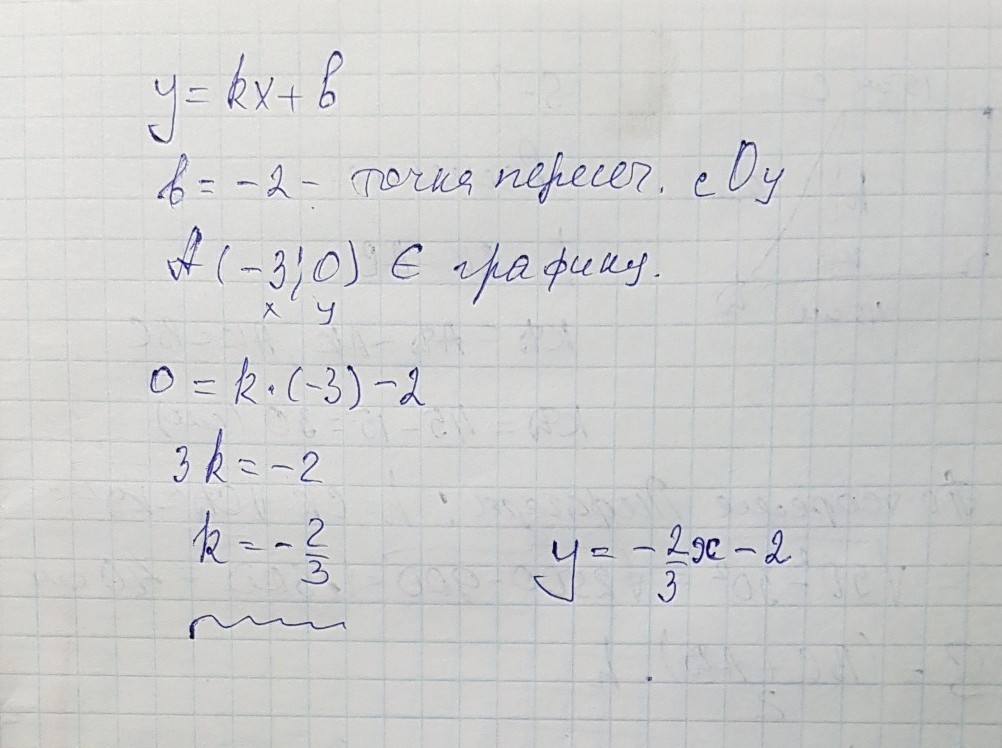 y = kx + b
b = -2 - точка пересеч. с Oy
A (-3; 0) ∈ графику.
x y
0 = k · (-3) - 2
3k = -2
k = -2/3
y = -2/3 x - 2